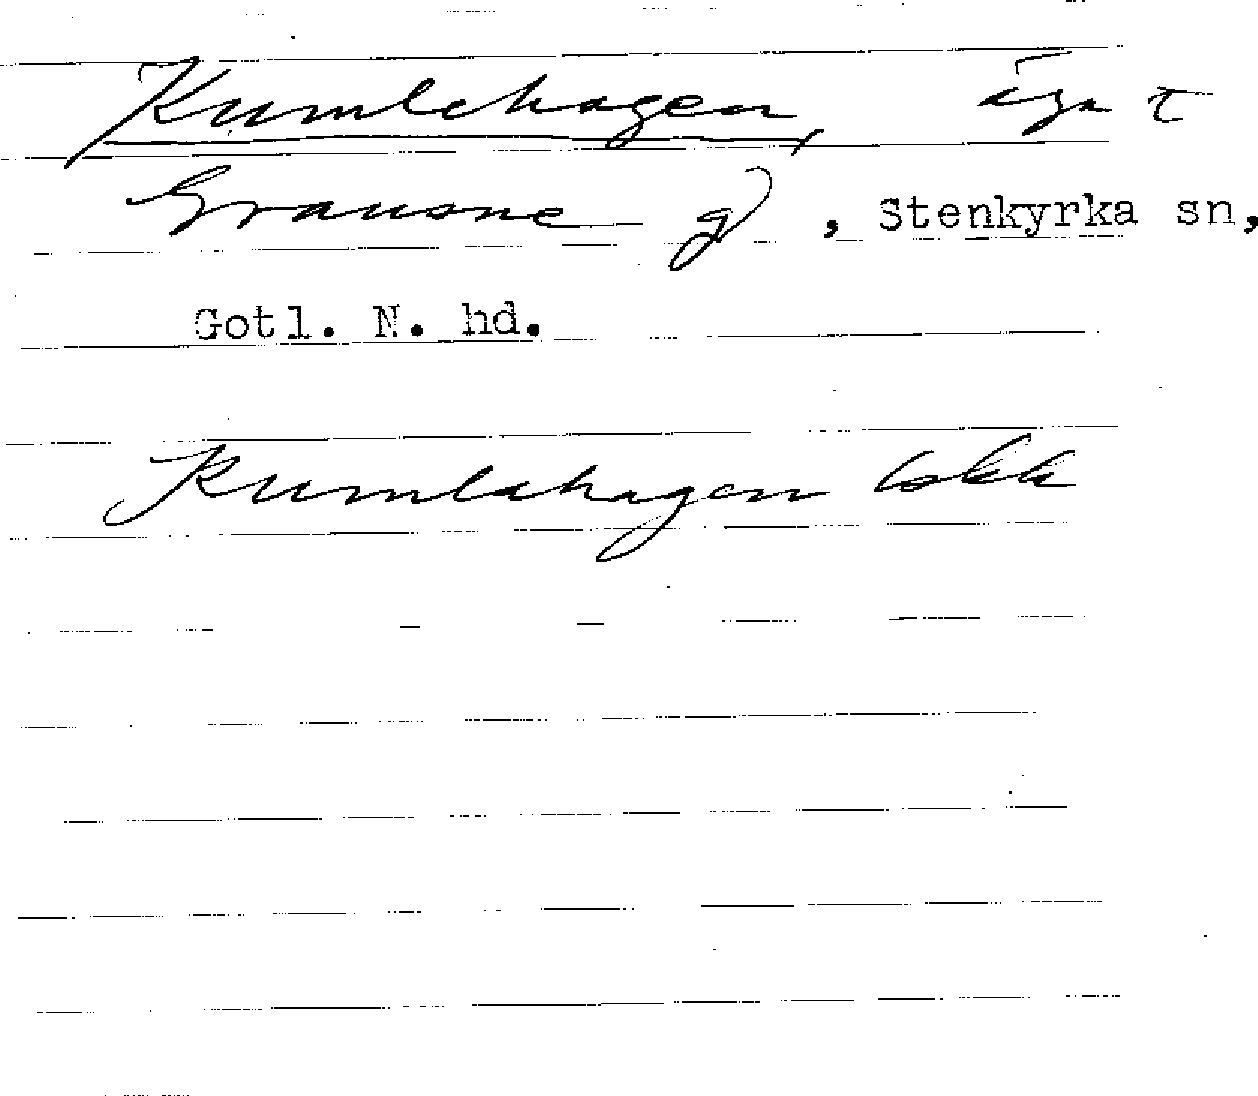 Kumlehagen, äga t
Grausne gd, Stenkyrka sn,
Gotl. N. hd.
Kumlehagen